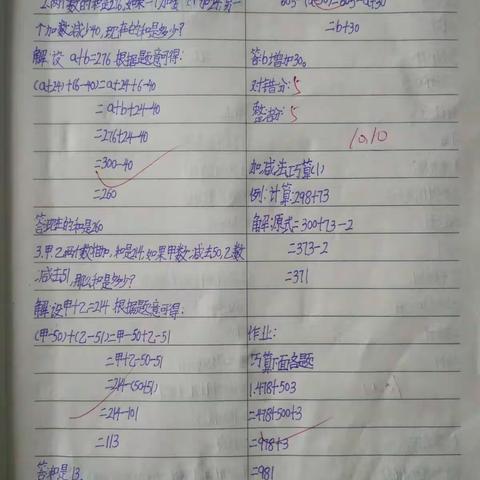 2.两个数的和是276,如果一个加数
个加数减少40,现在的和是多少?
解:设a+b=276 根据题意可得:
(a+24)+(6-40)=a+24+6-40
=a+b+24-40
=276+24-40
=300-40
=260
答:现在的和是260
3.甲、乙两个数相加,和是214,如果甲数减去50,乙数
减去51,那么和是多少?
解:设甲+乙=214 根据题意可得:
(甲-50)+(乙-51)=甲-50+乙-51
=甲+乙-50-51
=214-(50+51)
=214-101
=113
答:和是13.
=b+30
答:b增加30。
对错分:5
整洁分:5
10.10
加减法巧算(1)
例:计算:298+73
解:原式=300+73-2
=373-2
=371
作业:
巧算下面各题
1.478+503
=478+500+3
=978+3
=981